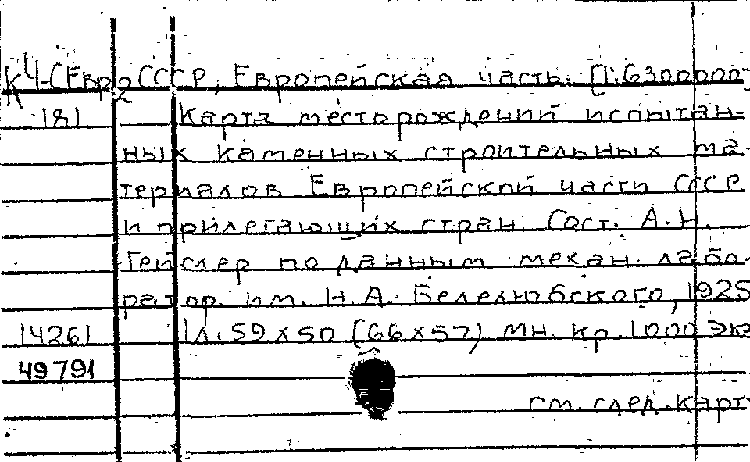 К4-СЕвр СССР, Европейская часть. [1:6300000]
2
181 Карта месторождений испытан-
ных каменных строительных ма-
териалов Европейской части СССР
и прилегающих стран. Сост. А.Н.
Гейслер по данным механ. лабо-
ратор. им. Н.А. Белелюбского, 1925
14261 1л. 59x50 (66x57) мн. кр. 1000 экз
49791
см. след. карт